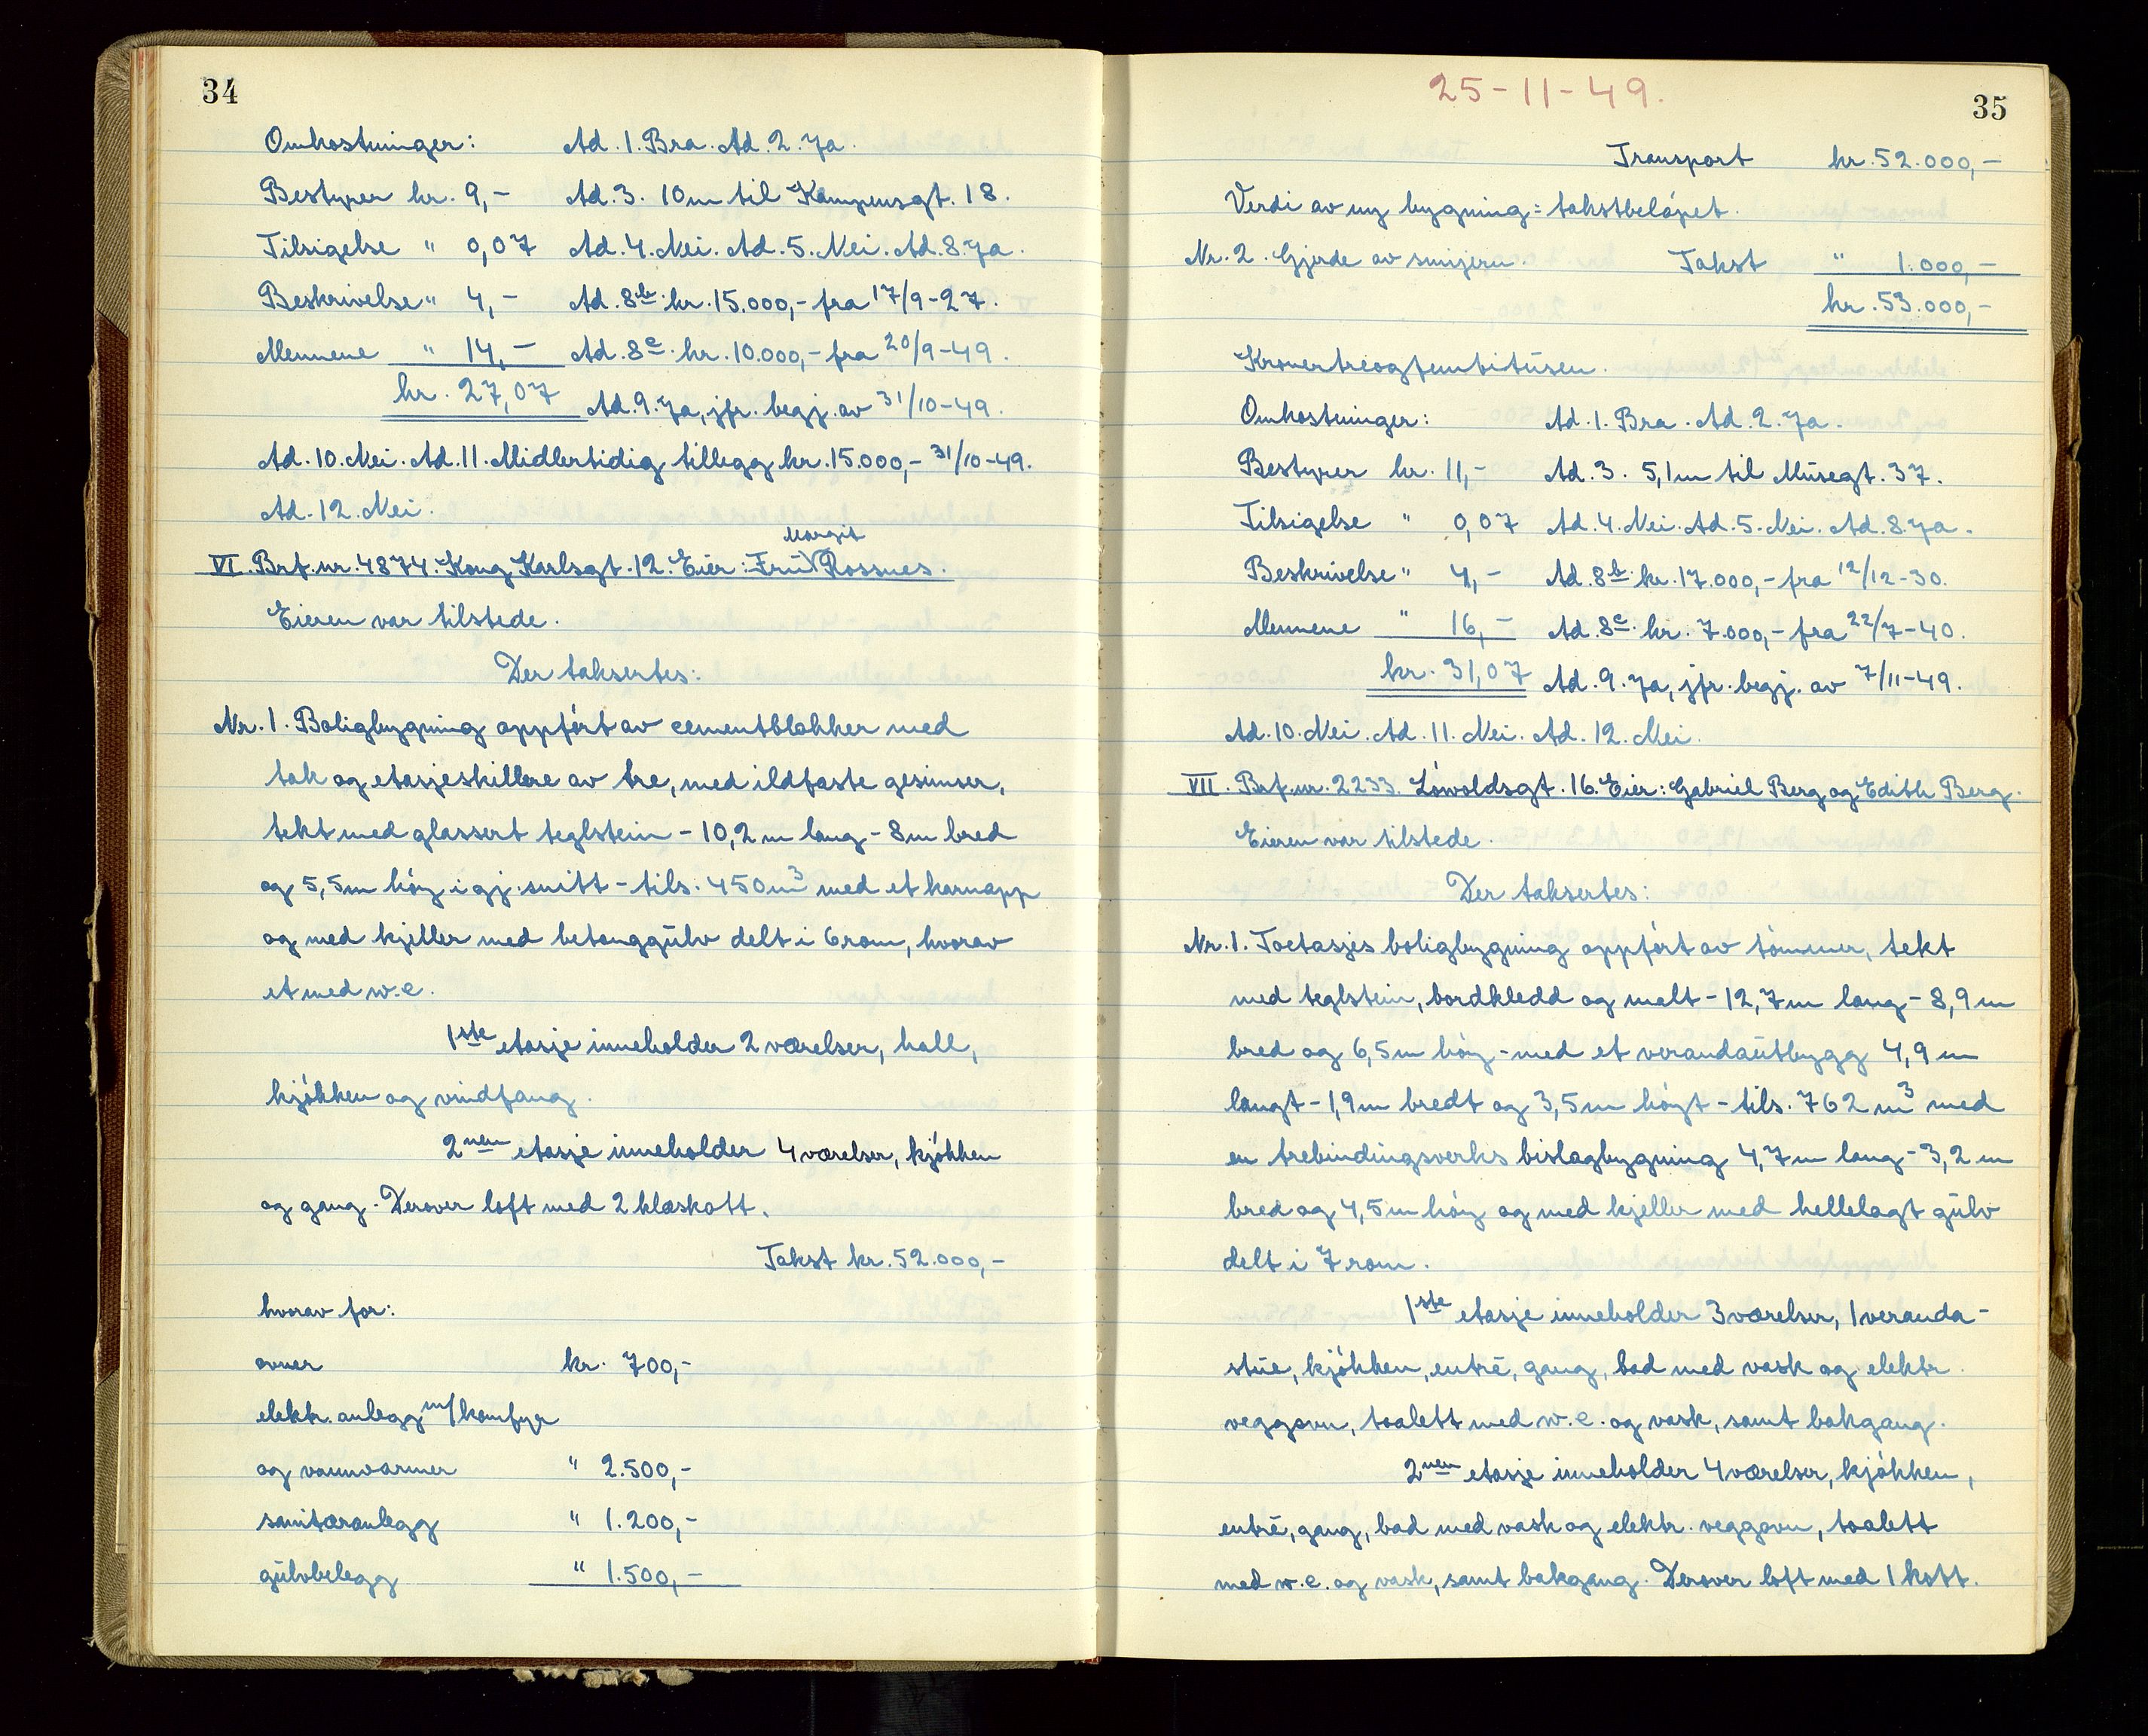 34
Omkostninger: Ad. 1. Bra. Ad. 2. Ja.
Bestyrer kr. 9,- Ad. 3. 10m til Kampensgt. 18.
Tilsigelse " 0,07 Ad. 4. Nei. Ad. 5. Nei. Ad. 8. Ja.
Beskrivelse " 4,- Ad. 8b. kr. 15.000,- fra 17/9-27.
Mennene " 14,- Ad. 8c. kr. 10.000,- fra 20/9-49.
kr. 27,07 Ad. 9. Ja, jfr. begj. av 31/10-49.
Ad. 10. Nei. Ad. 11. Midlertidig tillegg kr. 15.000,- 31/10-49.
Ad. 12. Nei.
Margit
VI. Brf. nr. 4874. Kong Karlsgt. 12. Eier: Fru Rossnes.
Eieren var tilstede.
Der taksertes:
Nr. 1. Boligbygning oppført av cementblokker med
tak og etasjeskillere av tre, med ildfaste gesimser,
tekt med glassert teglstein - 10,2 m lang - 8m bred
og 5,5m høy i gj. snitt - tils. 450m³ med et karnapp
og med kjeller med betonggulv delt i 6 rom, hvorav
et med w.c.
1ste etasje inneholder 2 værelser, hall,
kjøkken og vindfang.
2nen etasje inneholder 4 værelser, kjøkken
og gang. Derover loft med 2 klæskott.
Takst kr. 52.000,-
hvorav for:
ovner kr. 700,-
elektr. anlegg m/komfyr
og vannvarmer " 2.500,-
sanitæranlegg " 1.200,-
gulvbelegg " 1.500,-
25-11-49.
35
Transport kr. 52.000,-
Verdi av ny bygning = takstbeløpet.
Nr. 2. Gjerde av smijern. Takst " 1.000,-
kr. 53.000,-
Kronertreogfemtitusen.
Omkostninger: Ad. 1. Bra. Ad. 2. Ja.
Bestyrer kr. 11,- Ad. 3. 5,1m til Musegt. 37.
Tilsigelse " 0,07 Ad. 4. Nei. Ad. 5. Nei. Ad. 8. Ja.
Beskrivelse " 4,- Ad. 8b. kr. 17.000,- fra 12/12-30.
Mennene " 16,- Ad. 8c. kr. 7.000,- fra 22/7-40.
kr. 31,07 Ad. 9. Ja, jfr. begj. av 7/11-49.
Ad. 10. Nei. Ad. 11. Nei. Ad. 12. Nei.
VII. Brf. nr. 2233. Løwoldsgt. 16. Eier: Gabriel Berg og Edith Berg.
Eieren var tilstede.
Der taksertes:
Nr. 1. Toetasjes boligbygning oppført av tømmer, tekt
med teglstein, bordkledd og malt - 12,7m lang - 8,9 m
bred og 6,5m høy - med et verandautbygg 4,9 m
langt - 1,9m bredt og 3,5m høyt - tils. 762 m³ med
en trebindingsverks bislagbygning 4,7m lang - 3,2 m
bred og 4,5m høy og med kjeller med hellelagt gulv
delt i 7 rom.
1ste etasje inneholder 3 værelser, 1 veranda-
stue, kjøkken, entré, gang, bad med vask og elektr.
veggovn, toalett med w.c. og vask, samt bakgang.
2nen etasje inneholder 4 værelser, kjøkken,
entré, gang, bad med vask og elektr. veggovn, toalett
med w.c. og vask, samt bakgang. Derover loft med 1 kott.